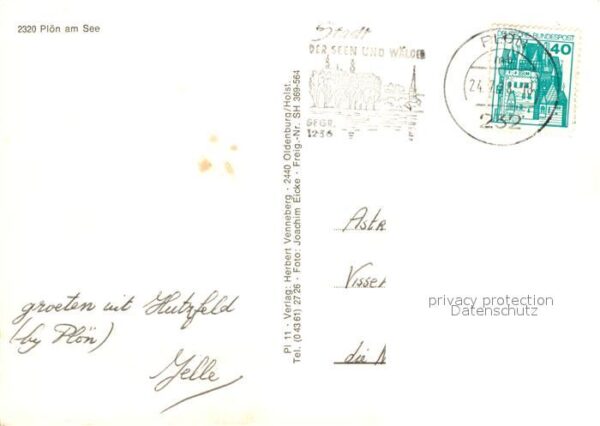 2320 Plön am See
Stadt
DER SEEN UND WÄLDER
GEGR.
1236
PLÖN
24.7.
232
DEUTSCHE BUNDESPOST
40
Pl 11 · Verlag: Herbert Venneberg · 2440 Oldenburg/Holst.
Tel. (0 43 61) 27 26 · Foto: Joachim Eicke · Freig.-Nr. SH 369-564
Astr
Visser
die
privacy protection
Datenschutz
groeten uit Hutzfeld
(by Plön)
Jelle